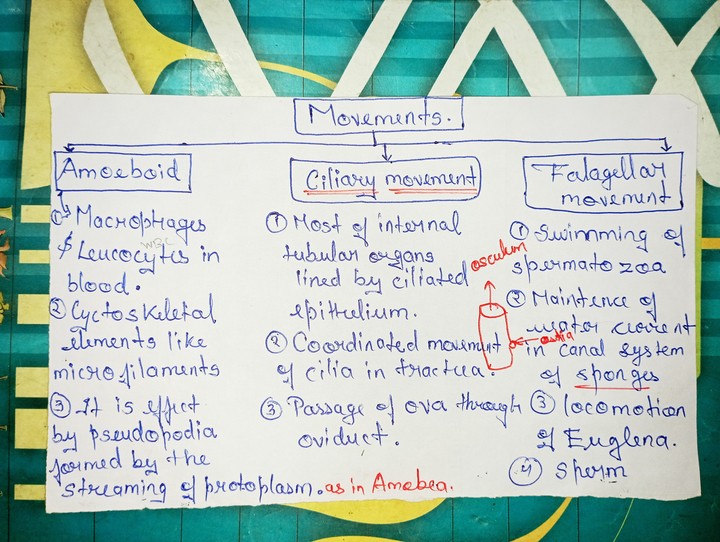 Movements.
Amoeboid
① Macrophages
& Leucocytes in
WBC
blood.
② Cyctoskeletal
elements like
microfilaments
③ It is effect
by pseudopodia
formed by the
streaming of protoplasm. as in Amobea.
Ciliary movement
① Most of internal
tubular organs
lined by ciliated
epithelium.
② Coordinated movement
of cilia in trachea.
③ Passage of ova through
oviduct.
osculum
ostia
Falagellar
movement
① Swimming of
spermatozoa
② Maintence of
water current
in canal system
of sponges
③ locomotion
of Euglena.
④ Sperm